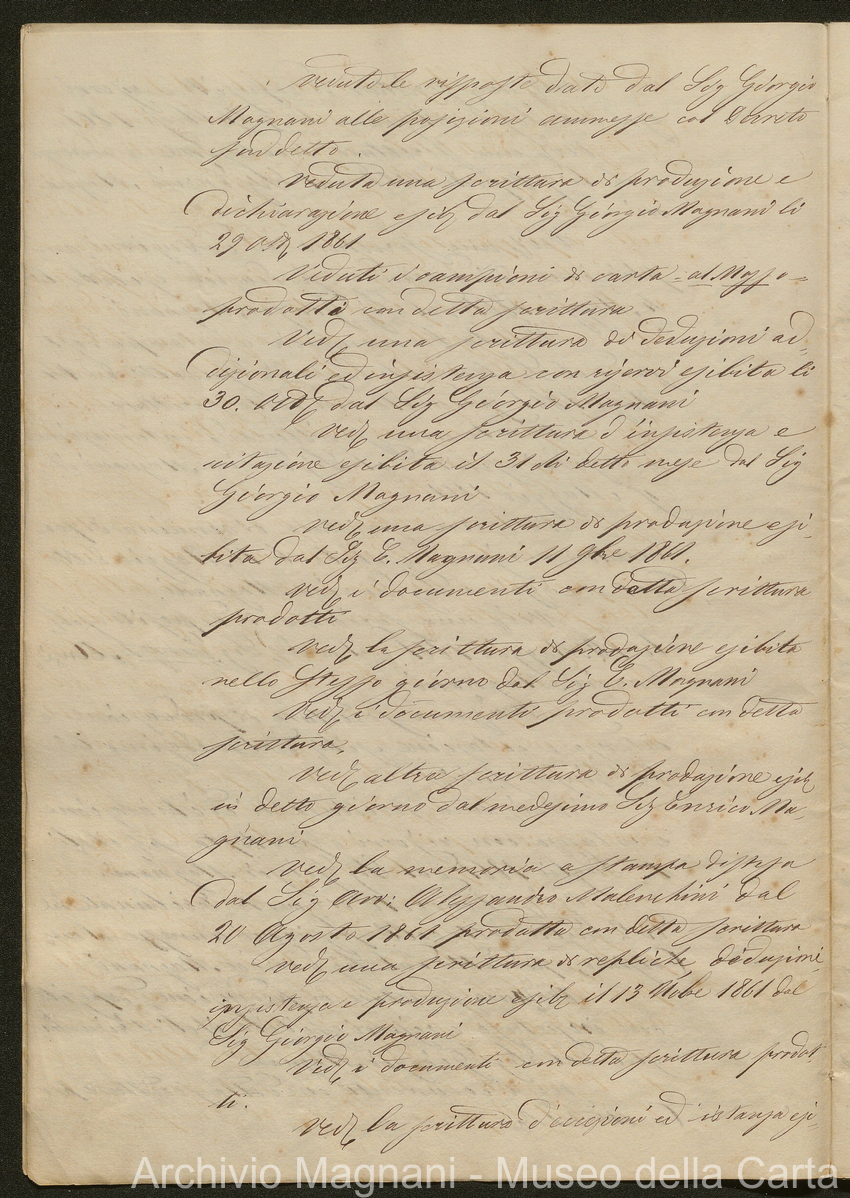 Vedute le risposte date dal Sig Giorgio
Magnani alle posizioni ammesse col Decreto
suddetto.
Veduta una scrittura di produzione e
dichiarazione esib dal Sig Giorgio Magnani li
29 1861
Veduti i campioni di carta = al Masso =
prodotti con detta scrittura
Ved una scrittura di deduzioni ad-
dizionali ed insistenza con riservi esibita li
30. dal Sig Giorgio Magnani
Ved una scrittura d'insistenza e
citazione esibita il 31 di detto mese dal Sig
Giorgio Magnani
Ved una scrittura di produzione esi-
bita dal Sig E. Magnani 11 9bre 1861.
Ved i documenti con detta scrittura
prodotti
Ved la scrittura di produzione esibita
nello stesso giorno dal Sig E. Magnani
Ved i documenti prodotti con detta
scrittura.
Ved altra scrittura di produzione esib
in detto giorno dal medesimo Sig Enrico Ma-
gnani
Ved la memoria a stampa distesa
dal Sig Avv: Alessandro Malenchini dal
20 Agosto 1861 prodotta con detta scrittura
Ved una scrittura di repliche deduzioni,
insistenza e produzione esib il 13 1861 dal
Sig Giorgio Magnani
Ved i documenti con detta scrittura prodot
ti.
Ved la scrittura d'eccezioni ed istanza esi-
Archivio Magnani - Museo della Carta